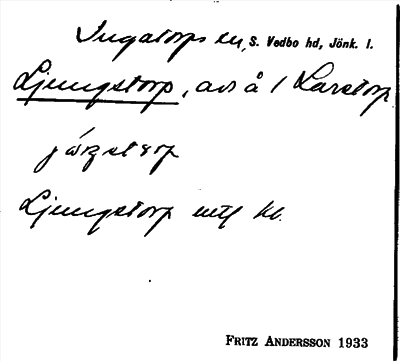 Ingatorps sn, S. Vedbo hd, Jönk. l.
Ljungstorp, avs å 1 Larstorp
Ljungstorp mtl kr.
FRITZ ANDERSSON 1933